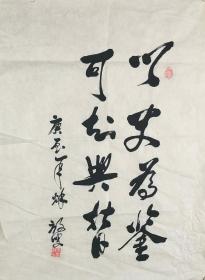 以史為鑒
可知興替
庚寅年